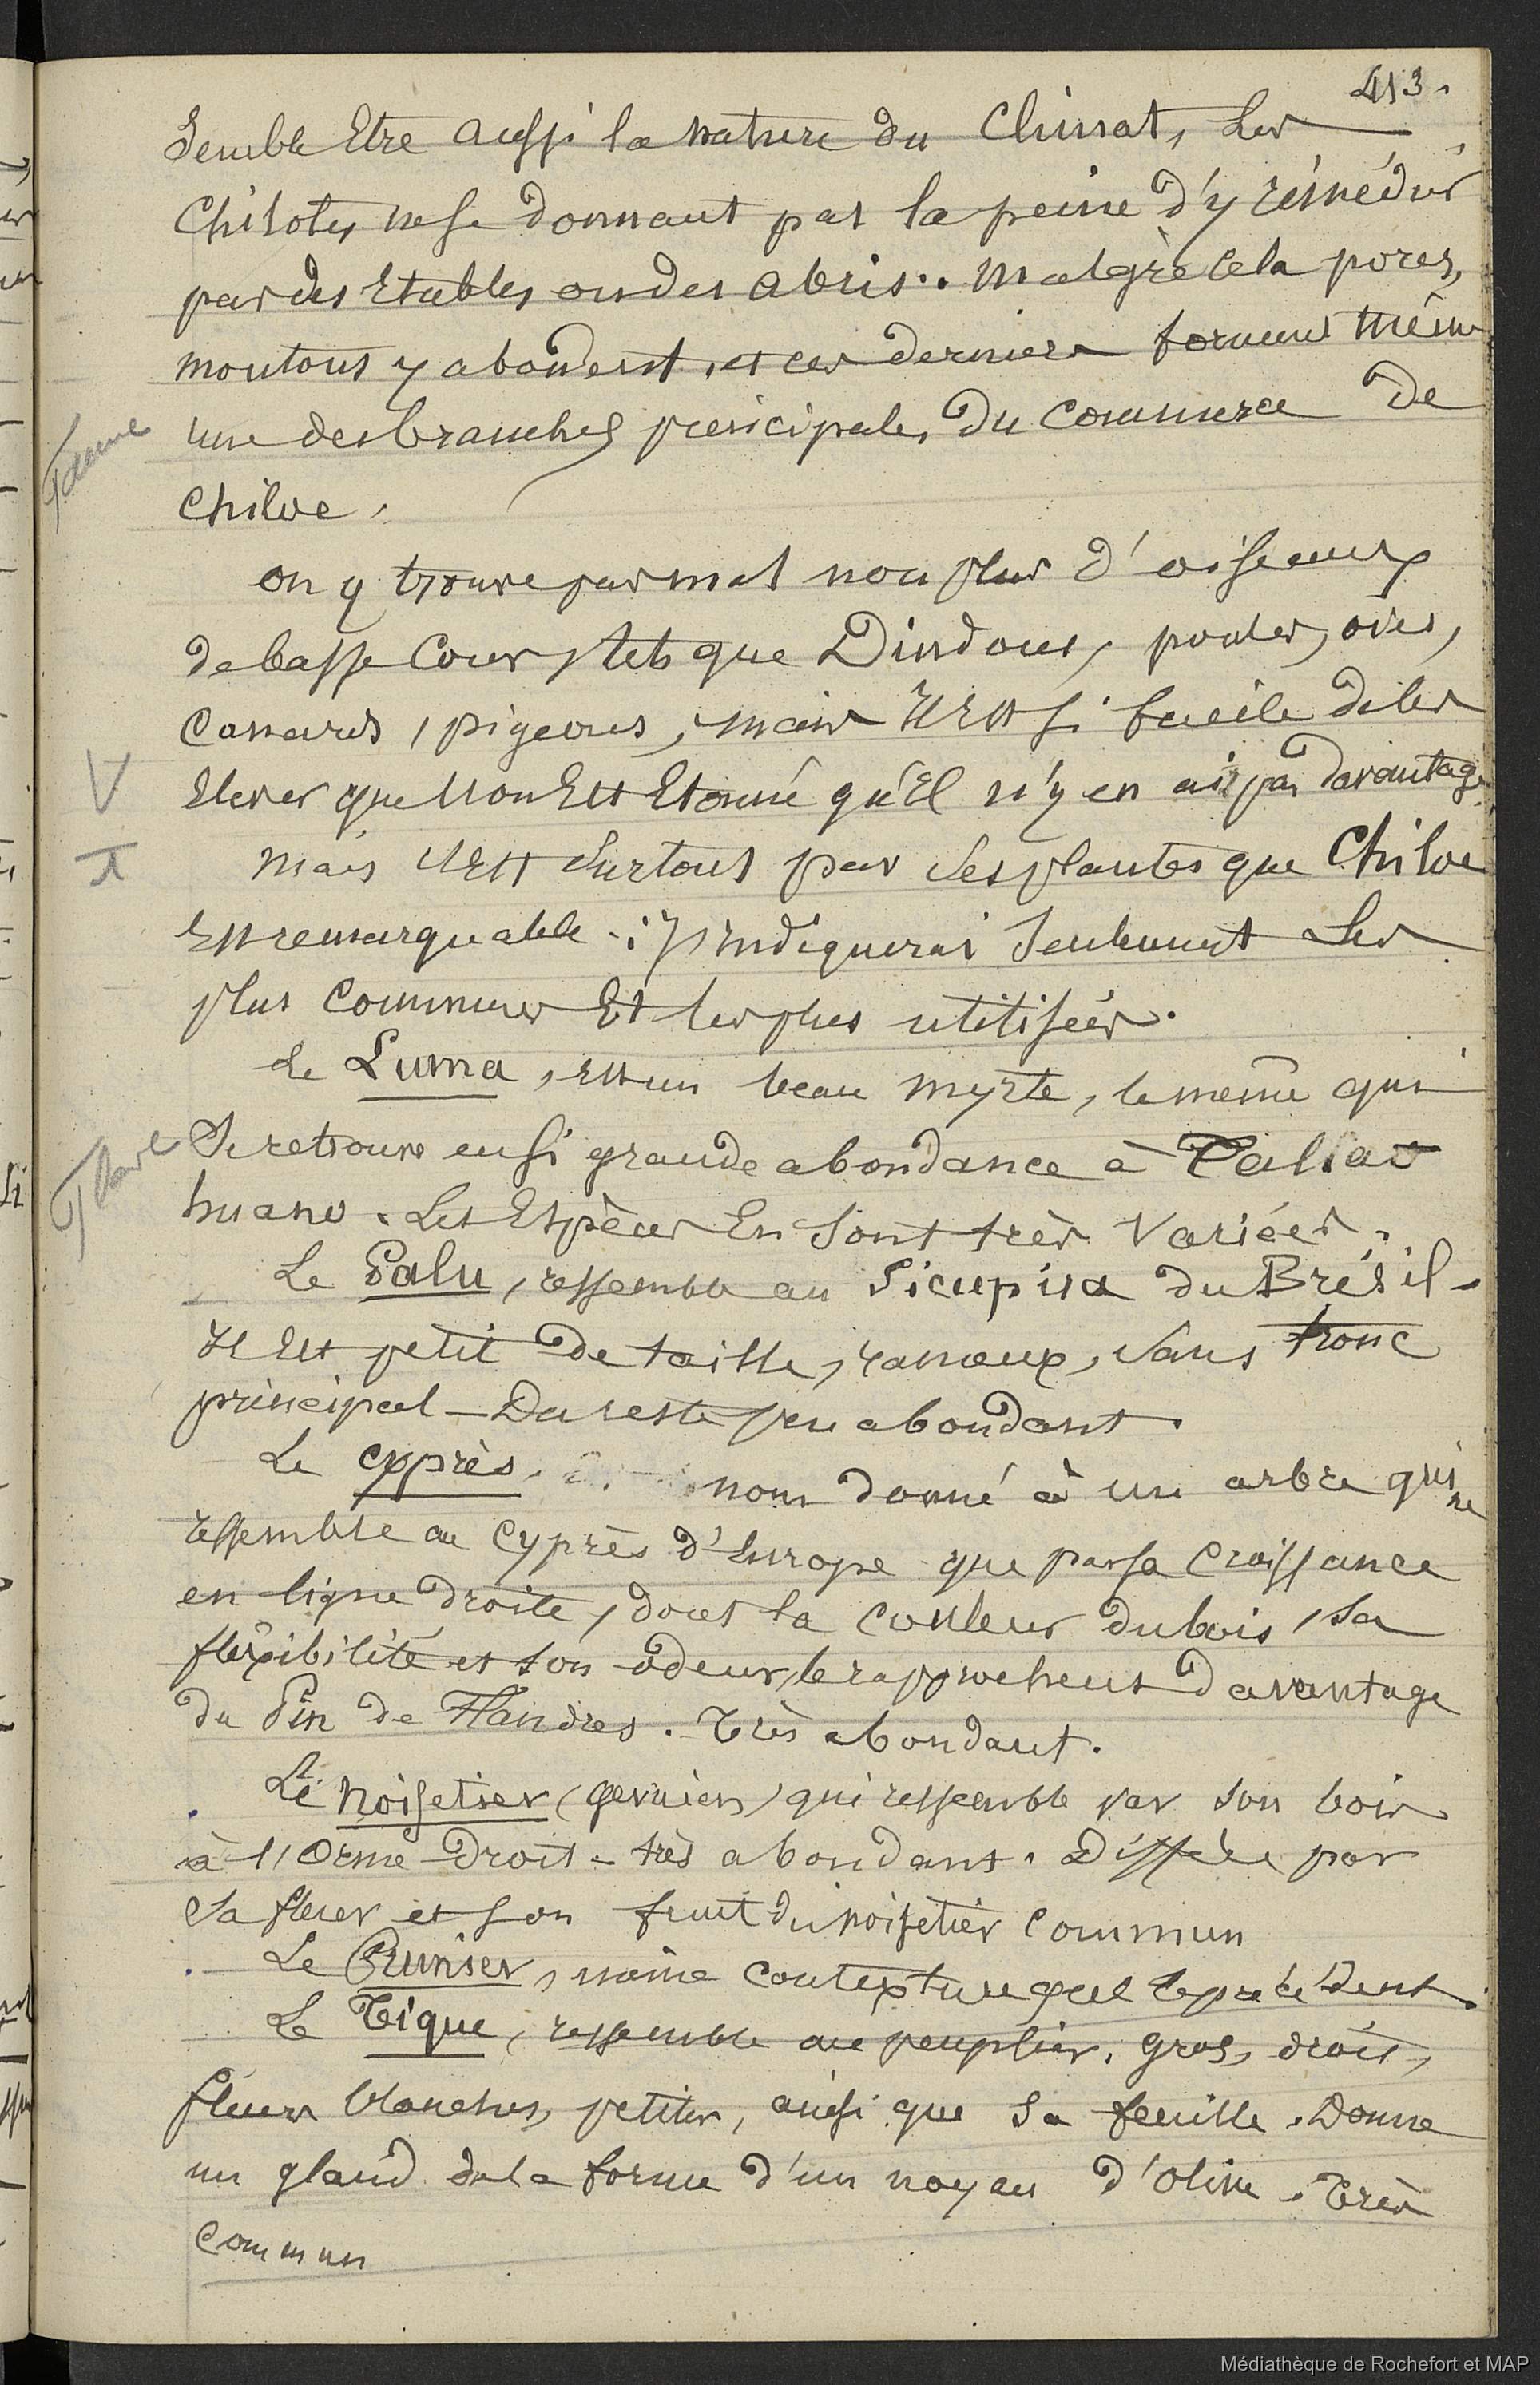 413.
Semble Etre aussi la nature du Climat, Les
Chilotes ne se donnant pas la peine d'y rémédier
par des Etables ou des abris.. malgrè cela porcs,
moutons y abondent, et ces derniers forment même
une des branches principales du commerce de
Chiloe.
on y trouve pas mal non plus d'oiseaux
de basse Cour, tels que Dindons, poules, oies,
Canards, pigeons, mais Il Est si facile de les
Elever que l'on Est Etonné qu'Il n'y en ait pas davantage.
Mais Il Est Surtout par ses plantes que Chiloe
Est remarquable. J'Indiquerai Seulement Les
plus Communes Et les plus utilisées.
Le Luma, Est un beau myrte, le même qui
Se retrouve en si grande abondance à Talcao
huano. Les Espèces En Sont très Variées.
Le Palu, ressemble au Sicupira du Brésil.
Il Est petit de taille, rameux, Sans tronc
principal - Du reste peu abondant.
Le cyprès. nom donné à un arbre qui ne
ressemble au Cyprès d'Europe que par sa Croissance
en ligne droite, dont la Couleur du bois, Sa
fléxibilité et son odeur, le rapprochent davantage
du Pin de Flandres. Très abondant.
Le noisetier (gevuien) qui ressemble par son bois
à l'Orme droit - très abondant. Diffère par
Sa fleur et son fruit du noisetier Commun
Le Prunier, même contexture que le précédent.
Le Tique, ressemble au peuplier, gros, droit,
fleurs blanches, petites, ainsi que Sa feuille. Donne
un gland de la forme d'un noyau d'Olive. Très
Commun
Médiathèque de Rochefort et MAP